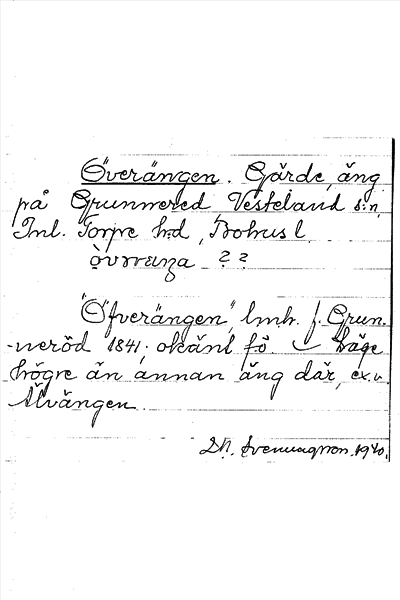 Överängen. Gärde, äng
på Grunnered, Vesteland s:n,
Inl. Torpe h:d, Bohus l.
? ?
"Öfverängen", lmh. f. Grun-
neröd 1841; okänt f.ö. Läge
högre än annan äng där, ex.v.
Älvängen.
1940.